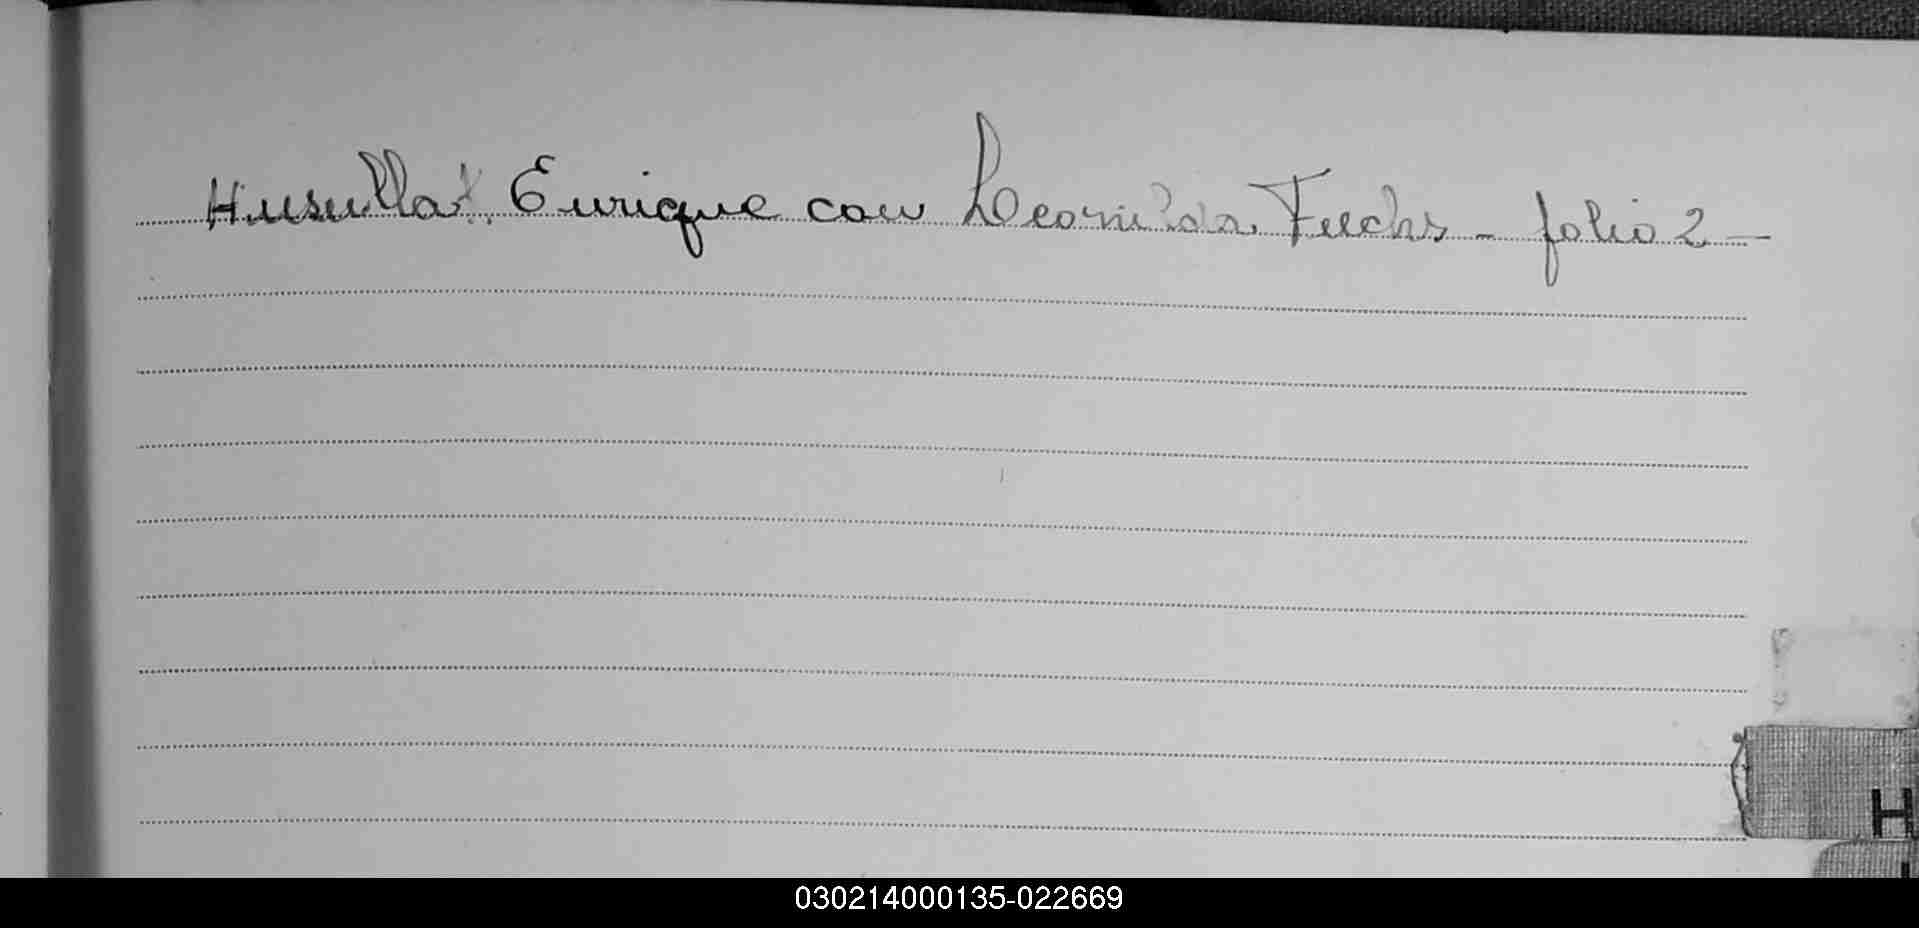 Enrique con Leonilda Fuchs - folio 2 -
H
030214000135-022669